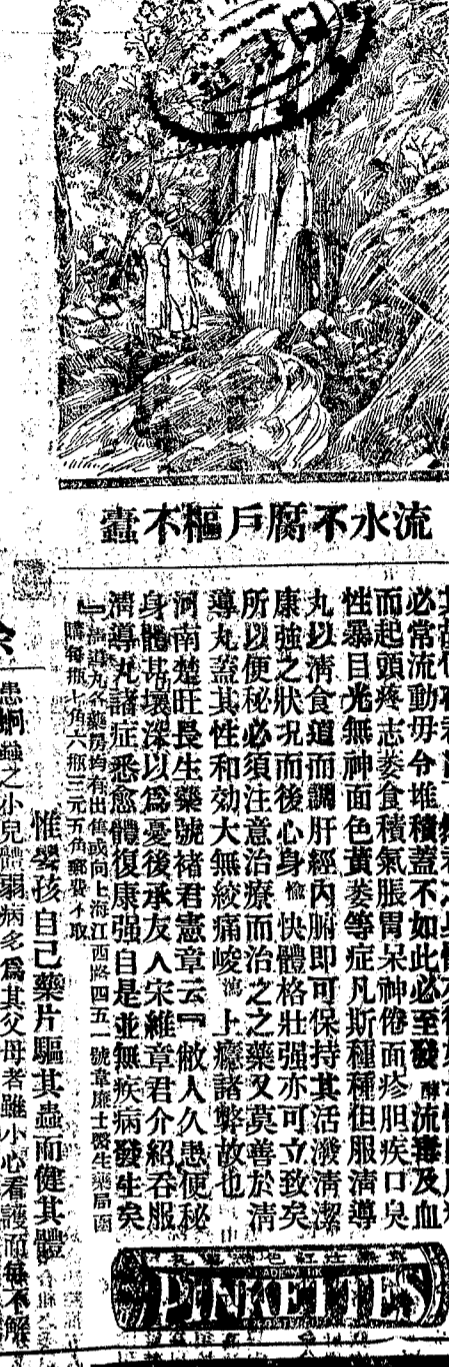 流水不腐戶樞不蠹
必常流動毋令堆積蓋不如此必至發酵流毒及血
而起頭疼志委食積氣脹胃呆神倦面疹胆疾口臭
性暴目光無神面色黃萎等症凡斯種種但服清導
丸以清食道而調肝經內腑即可保持其活潑清潔
康強之狀况而後心身愉快體格壯强亦可立致矣
所以便秘必須注意治療而治之之藥又莫善於清
導丸蓋其性和効大無絞痛峻瀉上癮諸弊故也
河南楚旺長生藥號褚君憲章云『敝人久患便秘
身體甚壞深以爲憂後承友人宋維章君介紹吞服
清導丸諸症悉愈體復康强自是並無疾病發生矣
』清導丸各藥房均有出售或向上海江西路四五一號韋廉士醫生藥局函
購每瓶七角六瓶三元五角郵費不取
PINKETTES
惟嬰孩自己藥片驅其蟲而健其體
患蛔蟲之小兒體弱病多爲其父母者雖小心看護而每不解